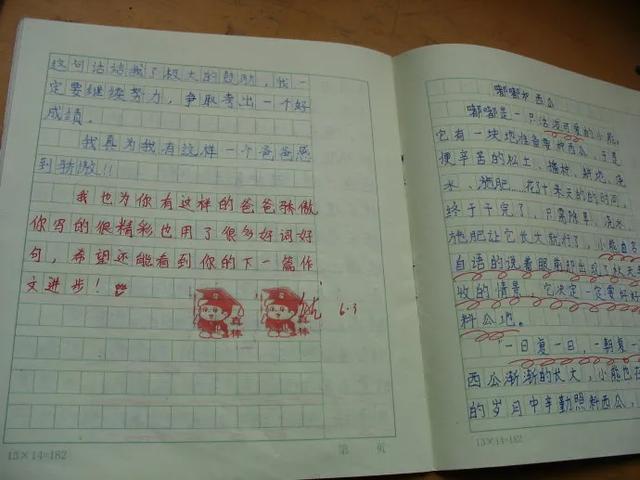 这句话给我了极大的鼓励，我一
定要继续努力，争取考出一个好
成绩。
我真为我有这样一个爸爸感
到骄傲！！
我也为你有这样的爸爸骄傲
你写的很精彩也用了很多好词好
句，希望还能看到你的下一篇作
文进步！
6.3
真棒
真棒
13×14=182
第 页
嘟嘟种西瓜
嘟嘟是一只活泼可爱的小熊，
它有一块地准备要种西瓜，于是
便辛苦的松土、播种、耕地、浇
水、施肥……花了
终于干完了，只需除草、浇水、
施肥让它长大就行了，小熊自言
自语的说着眼前
收的情景，它决定一定要好好
料瓜地。
一日复一日，一朝复一
西瓜渐渐的长大，小熊也在
的岁月中辛勤照料西瓜，
13×14=182